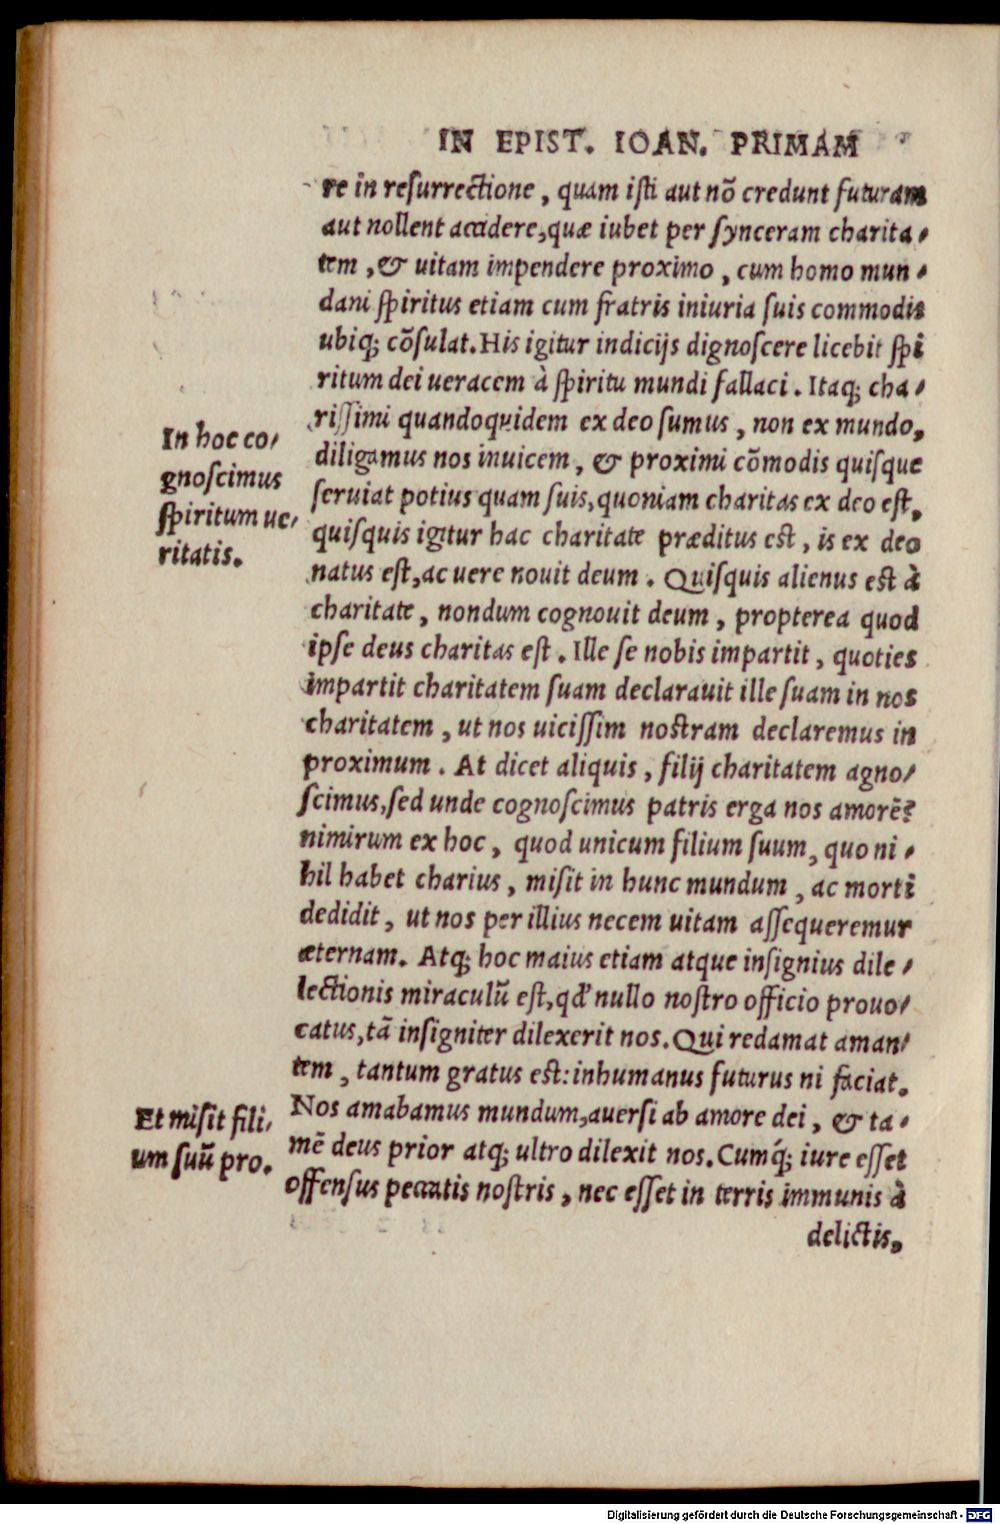 IN EPIST. IOAN. PRIMAM
re in resurrectione, quam isti aut nõ credunt futuram
aut nollent accidere, quæ iubet per synceram charita-
tem, & uitam impendere proximo, cum homo mun-
dani spiritus etiam cum fratris iniuria suis commodis
ubiq; cõsulat. His igitur indicijs dignoscere licebit spi
ritum dei ueracem à spiritu mundi fallaci. Itaq; cha-
rissimi quandoquidem ex deo sumus, non ex mundo,
diligamus nos inuicem, & proximi cõmodis quisque
seruiat potius quam suis, quoniam charitas ex deo est,
quisquis igitur hac charitate præditus est, is ex deo
natus est, ac uere nouit deum. Quisquis alienus est à
charitate, nondum cognouit deum, propterea quod
ipse deus charitas est. Ille se nobis impartit, quoties
impartit charitatem suam declarauit ille suam in nos
charitatem, ut nos uicissim nostram declaremus in
proximum. At dicet aliquis, filij charitatem agno-
scimus, sed unde cognoscimus patris erga nos amorẽ?
nimirum ex hoc, quod unicum filium suum, quo ni-
hil habet charius, misit in hunc mundum, ac morti
dedidit, ut nos per illius necem uitam assequeremur
æternam. Atq; hoc maius etiam atque insignius dile-
lectionis miraculũ est, qđ nullo nostro officio prouo-
catus, tã insigniter dilexerit nos. Qui redamat aman-
tem, tantum gratus est: inhumanus futurus ni faciat.
Nos amabamus mundum, auersi ab amore dei, & ta-
mẽ deus prior atq; ultro dilexit nos. Cumq́; iure esset
offensus peccatis nostris, nec esset in terris immunis à
delictis,
In hoc co-
gnoscimus
spiritum ue-
ritatis.
Et misit fili-
um suũ pro.
Digitalisierung gefördert durch die Deutsche Forschungsgemeinschaft - DFG